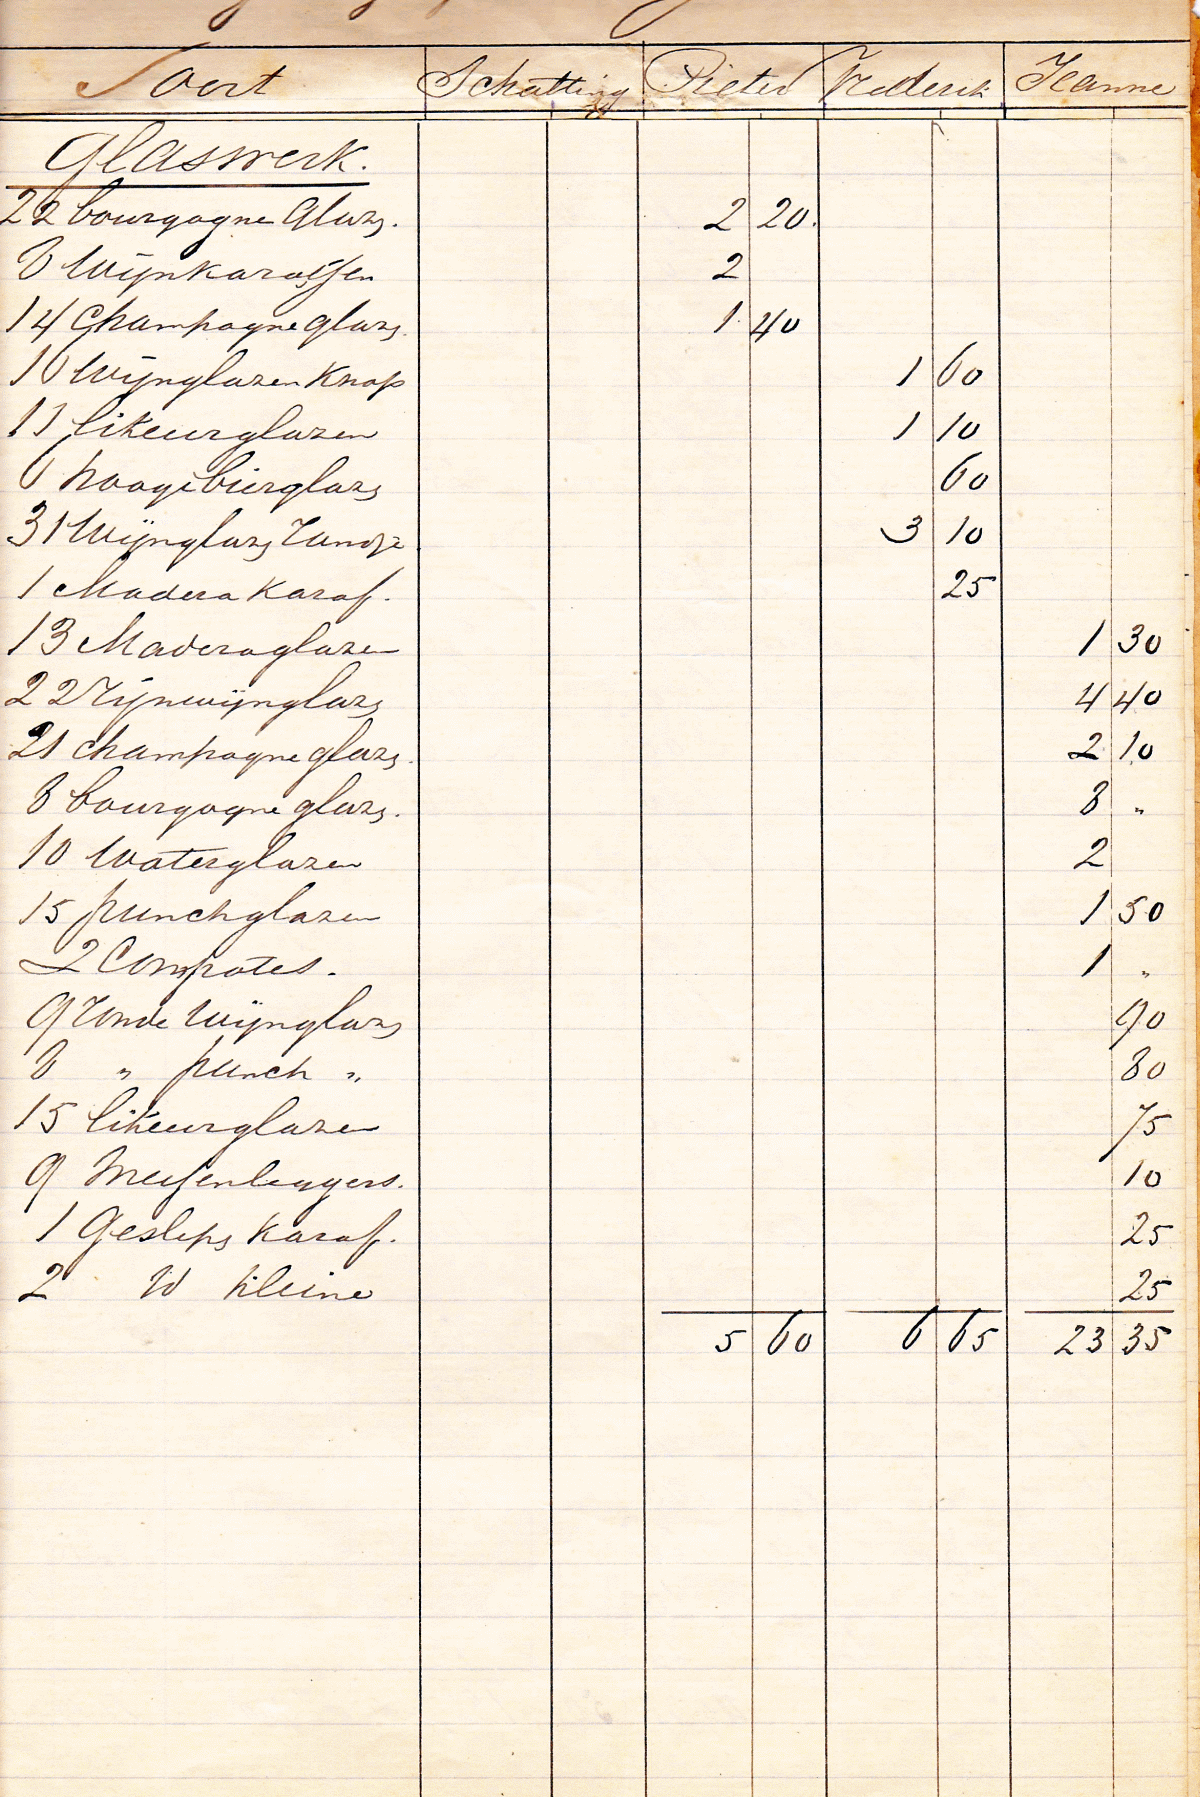 Soort Schatting Pieter Frederik Jeanne
Glaswerk.
22 bourgogne Glazs. 2 20.
8 Wijnkaraffen 2
14 Champagne glazs. 1 40
16 Wijnglazen Knop 1 60
11 likeurglazen 1 10
6 hooge bierglazs 60
31 Wijnglazs randje 3 10
1 Madera Karaf. 25
13 Maderaglazen 1 30
22 rijnwijnglazs 4 40
21 champagne glazs. 2 10
8 bourgogne glazs. 8 "
10 Waterglazen 2
15 punchglazen 1 50
2 Compotes. 1 "
9 ronde Wijnglazs 90
8 " punch " 80
15 likeurglazen 75
9 Messenleggers. 10
1 Gesleps Karaf. 25
2 id kleine 25
5 60 6 65 23 35